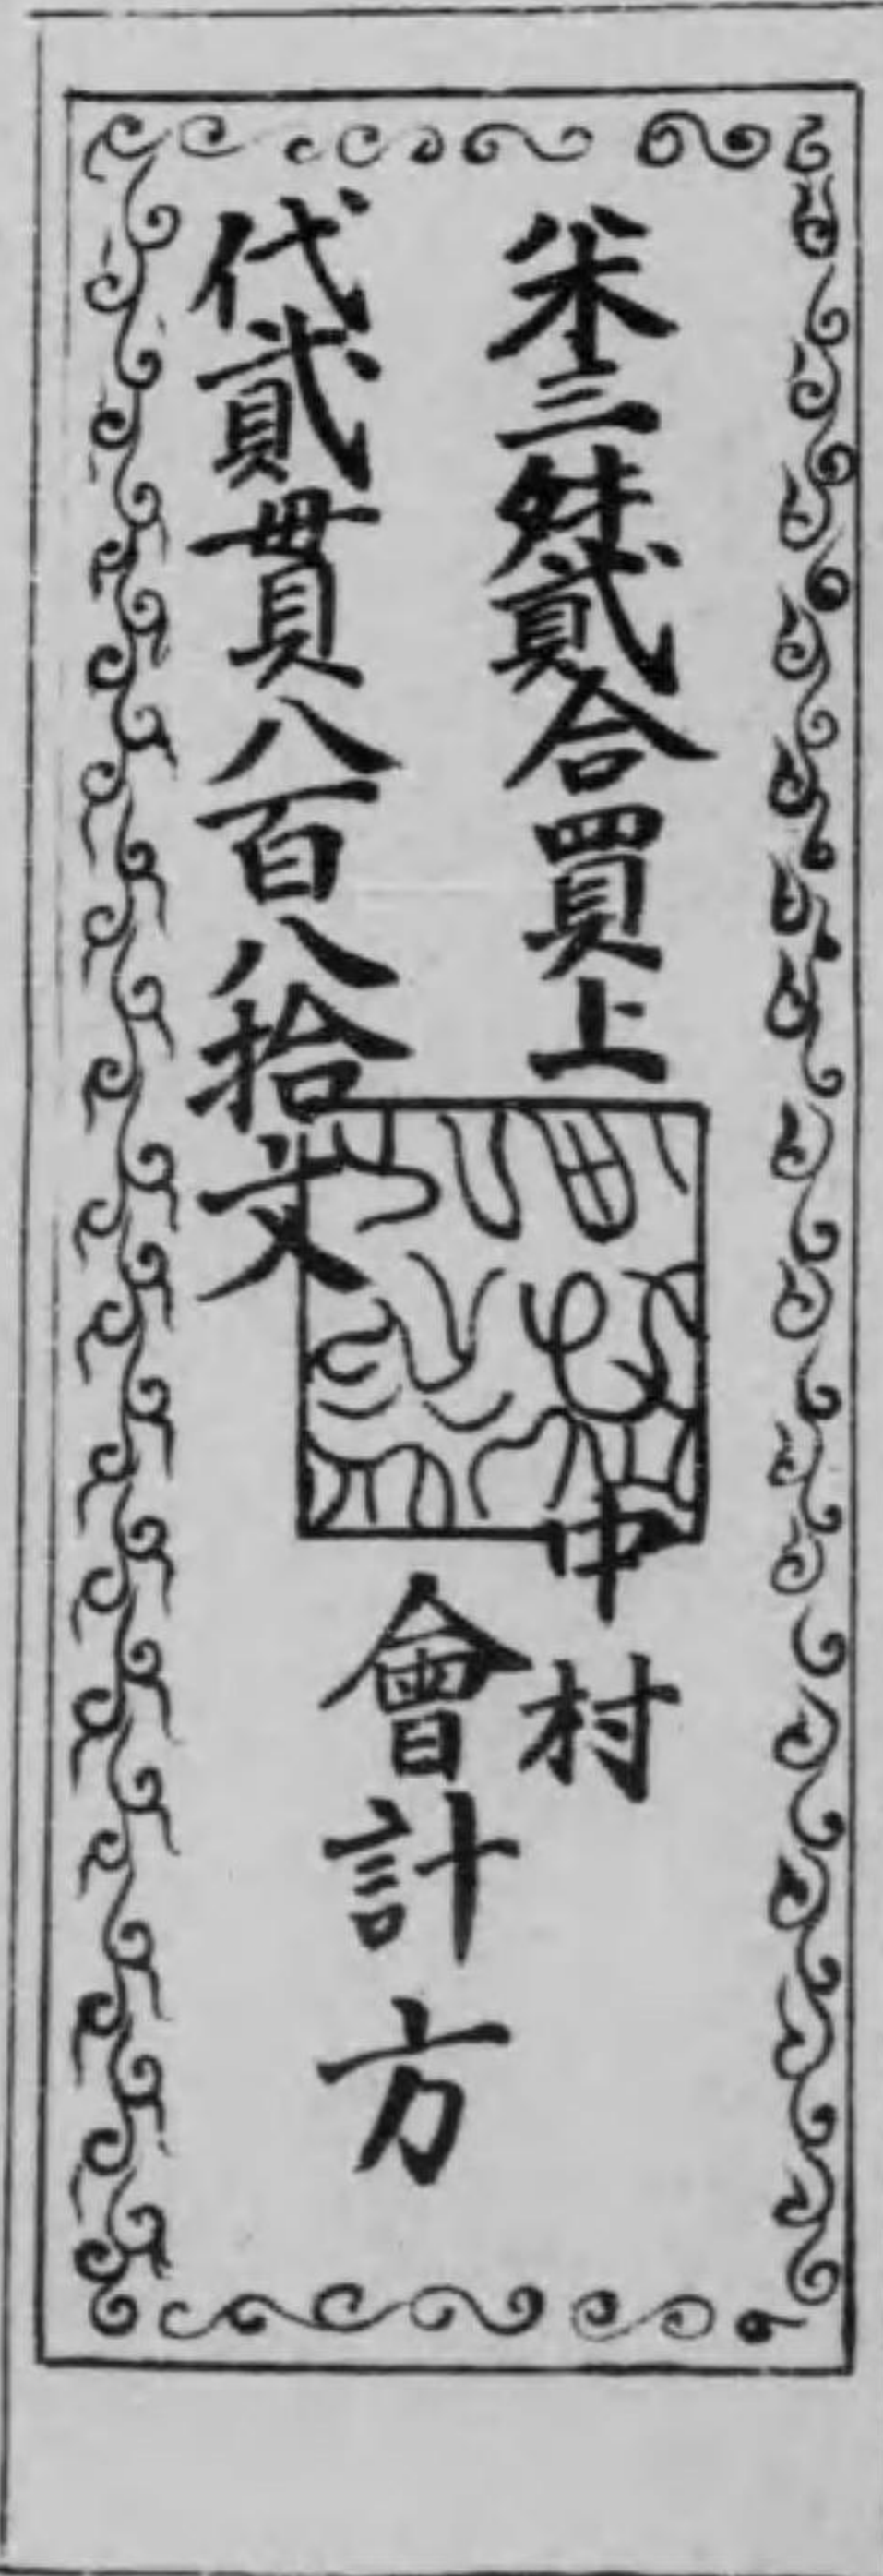 米三舛貳合買上
代貳貫八百八拾文
中村
會計方